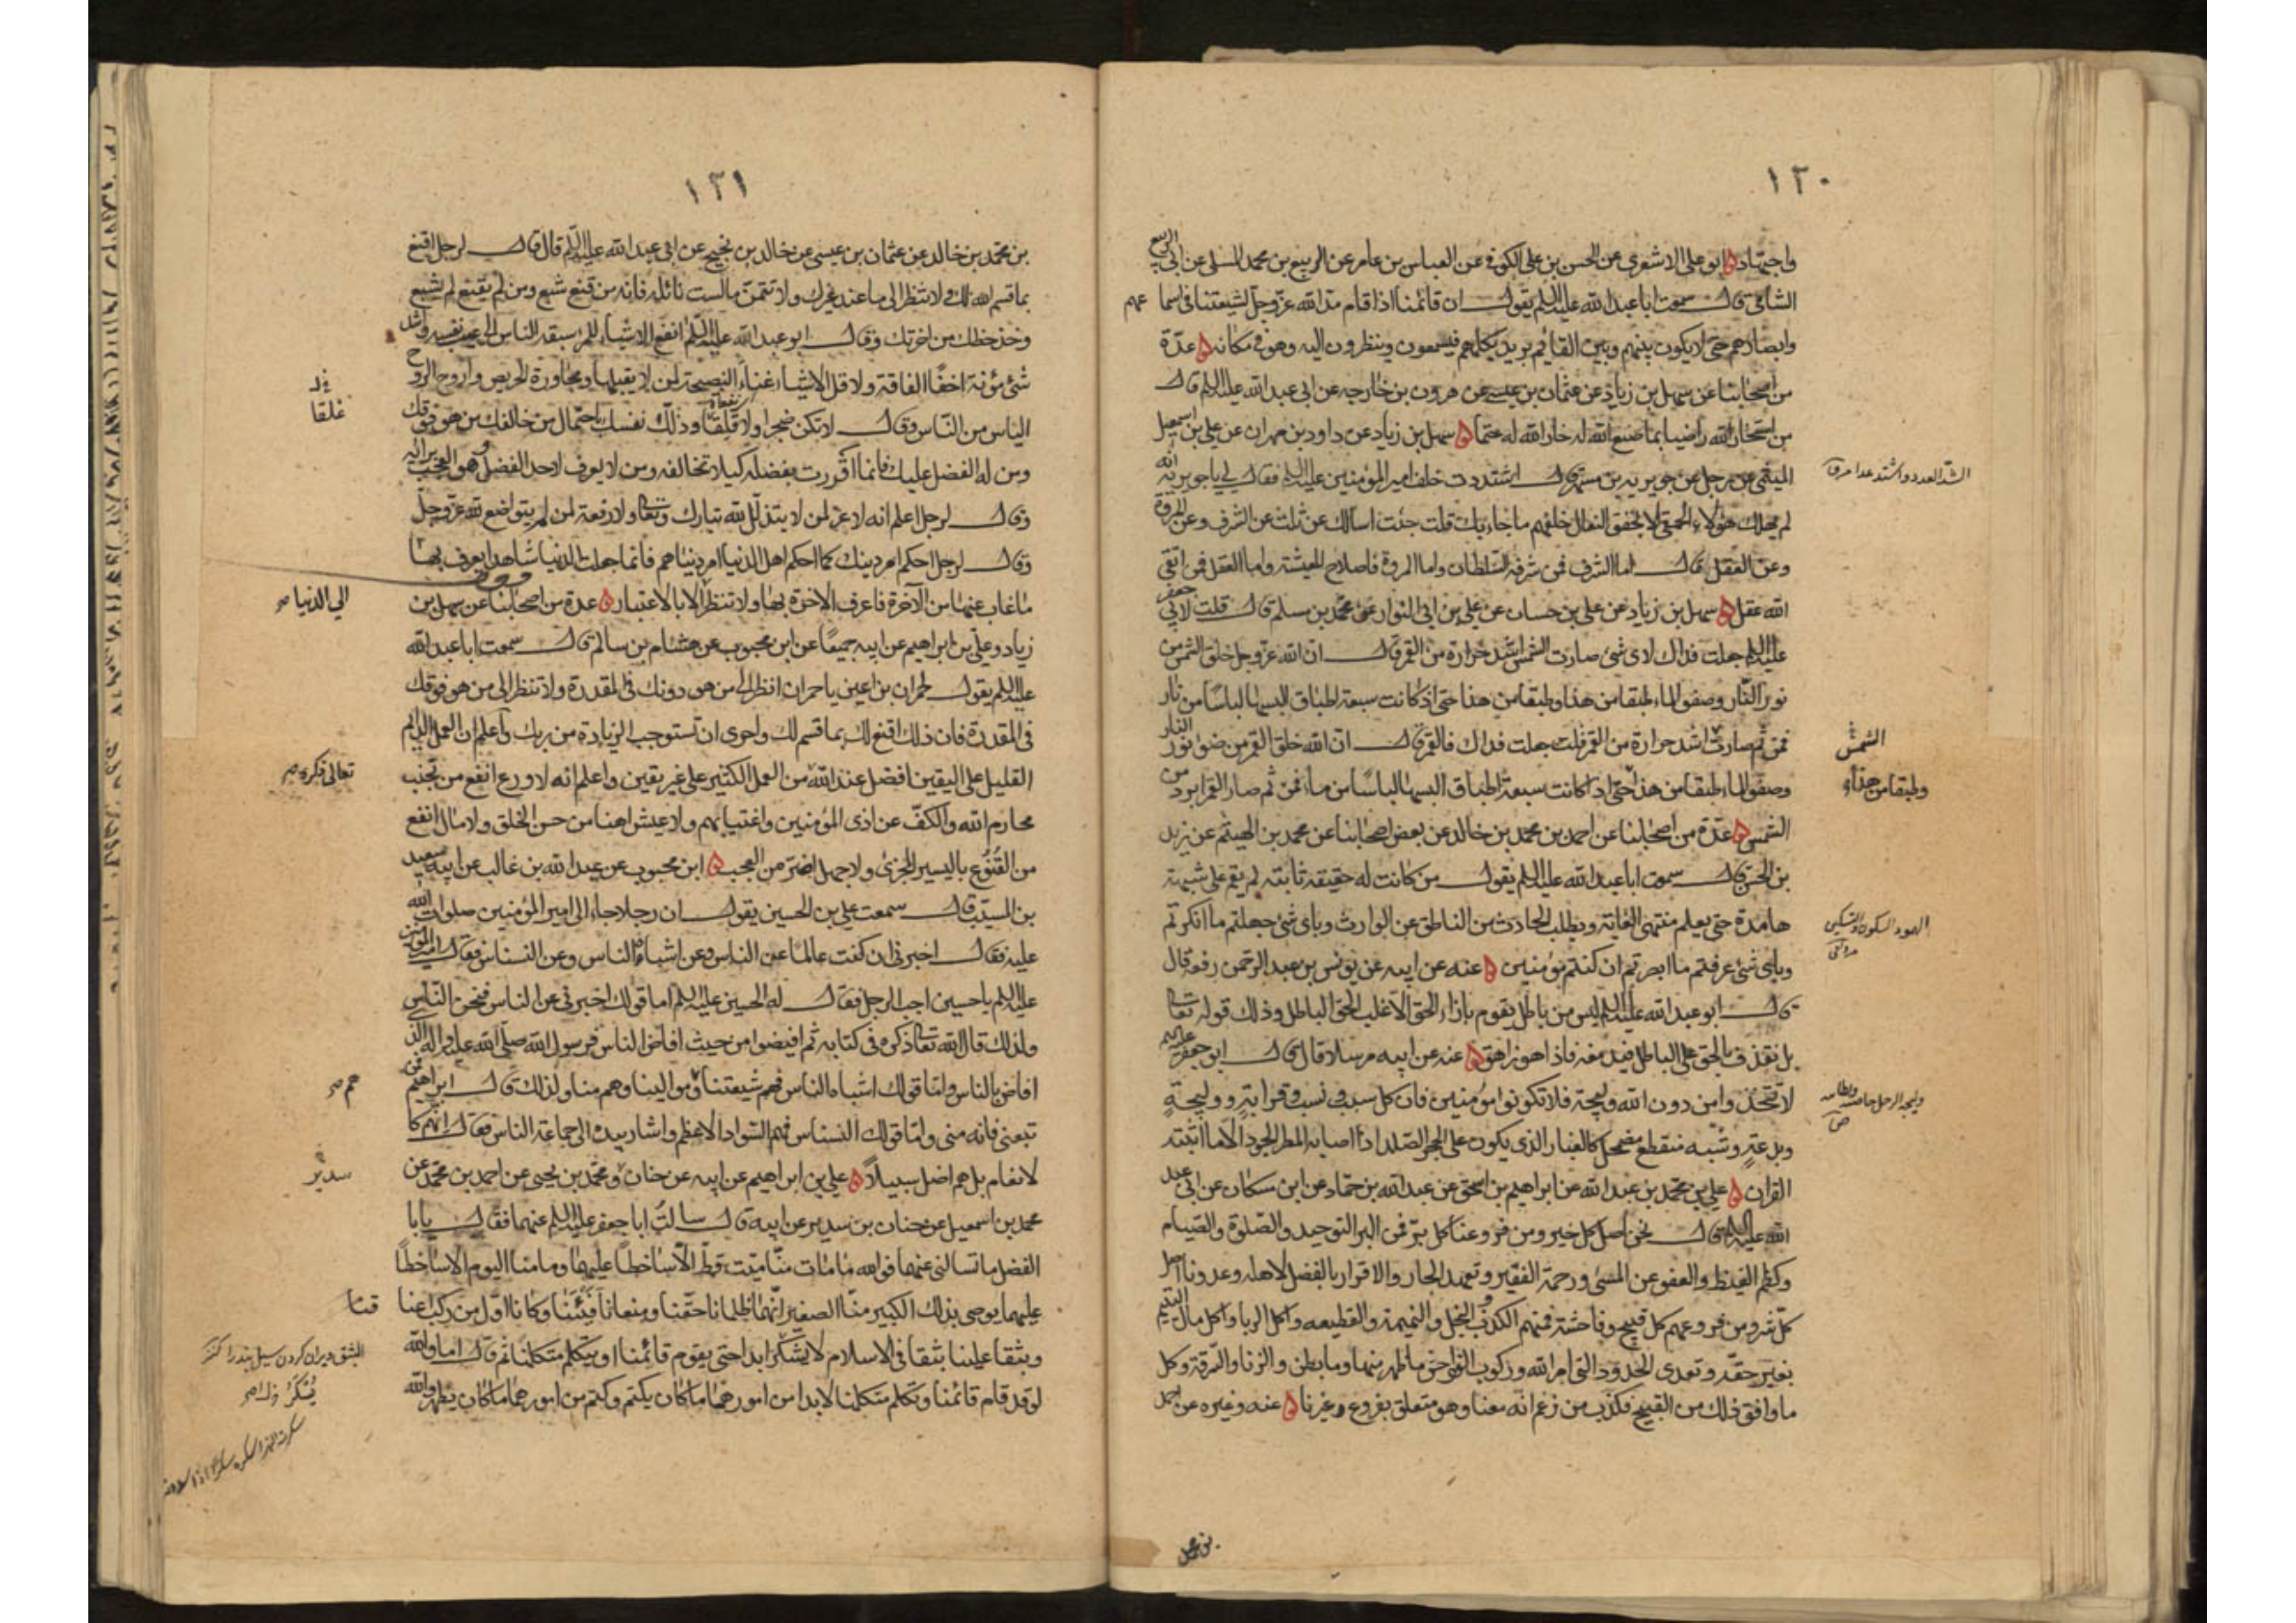 ١٣٠
واجتهاد ابو علی الاشعری عن الحسن بن علی الکوفی عن العباس بن عامر عن الربیع بن محمد المسلی عن ابی الربیع
الشامی قال سمعت ابا عبد الله علیه السلم یقول ان قائمنا اذا قام مد الله عز وجل لشیعتنا فی اسماعهم
وابصارهم حتی لا یکون بینهم وبین القایم برید یکلمهم فیسمعون وینظرون الیه وهو فی مکانه عدة
من اصحابنا عن سهل بن زیاد عن عثمان بن عیسی عن هرون بن خارجه عن ابی عبد الله علیه السلم قال
من استخار الله راضیا بما صنع الله له خار الله له حتما سهل بن زیاد عن داود بن مهران عن علی بن اسمعیل
المیثمی عن رجل عن جویریه بن مسهر قال اشتددت خلف امیر المؤمنین علیه السلم فقال لی یا جویریه انه
لم یهلک هؤلاء الحمقی الا بخفق النعال خلفهم ما جاء بک قلت جئت اسالک عن ثلث عن الشرف وعن المروة
وعن العقل قال اما الشرف فمن شرفه السلطان واما المروة فاصلاح المعیشة واما العقل فمن اتقی
الله عقل سهل بن زیاد عن علی بن حسان عن علی بن ابی النوار عن محمد بن مسلم قال قلت لابی جعفر
علیه السلم جعلت فداک لای شئ صارت الشمس اشد حرارة من القمر قال ان الله عز وجل خلق الشمس من
نور النار وصفو الماء طبقا من هذا وطبقا من هذا حتی اذ کانت سبعة اطباق البسها لباسا من نار
فمن ثم صارت اشد حرارة من القمر قلت جعلت فداک فالقمر قال ان الله خلق القمر من ضوء نور النار
وصفو الماء طبقا من هذا حتی اذا کانت سبعة اطباق البسها لباسا من ماء فمن ثم صار القمر ابرد من
الشمس عدة من اصحابنا عن احمد بن محمد بن خالد عن بعض اصحابنا عن محمد بن الهیثم عن زید
بن الحسن قال سمعت ابا عبد الله علیه السلم یقول من کانت له حقیقة ثابتة لم یقم علی شبهة
هامدة حتی یعلم منتهی الغایة ویطلب الحادث من الناطق عن الوارث وبای شئ جهلتم ما انکرتم
وبای شئ عرفتم ما ابصرتم ان کنتم مؤمنین عنه عن ابیه عن یونس بن عبد الرحمن رفعه قال
قال ابو عبد الله علیه السلم لیس من باطل یقوم بازاء الحق الا غلب الحق الباطل وذلک قوله تعالی
بل نقذف بالحق علی الباطل فیدمغه فاذا هو زاهق عنه عن ابیه مرسلا قال قال ابو جعفر علیه السلم
لا تتخذوا من دون الله ولیجة فلا تکونوا مؤمنین فان کل سبب ونسب وقرابة وولیجة
وبدعة وشبهة منقطع مضمحل کالغبار الذی یکون علی الحجر الصلد اذا اصابه المطر الجود الا ما اثبته
القران علی بن محمد بن عبد الله عن ابراهیم بن اسحق عن عبد الله بن حماد عن ابن مسکان عن ابی عبد
الله علیه السلم قال نحن اصل کل خیر ومن فروعنا کل بر فمن البر التوحید والصلوة والصیام
وکظم الغیظ والعفو عن المسئ ورحمة الفقیر وتعهد الجار والاقرار بالفضل لاهله وعدونا اصل
کل شر ومن فروعهم کل قبیح وفاحشة فمنهم الکذب والبخل والنمیمة والقطیعه واکل الربا واکل مال الیتیم
بغیر حقه وتعدی الحدود التی امر الله ورکوب الفواحش ما ظهر منها وما بطن والزنا والسرقة وکل
ما وافق ذلک من القبیح فکذب من زعم انه معنا وهو متعلق بفروع غیرنا عنه وغیره عن احمد
الشمس
وطبقا من هذا
١٣١
بن محمد بن خالد عن عثمان بن عیسی عن خالد بن نجیح عن ابی عبد الله علیه السلم قال قال لرجل اقنع
بما قسم الله لک ولا تنظر الی ما عند غیرک ولا تتمن ما لست نائله فانه من قنع شبع ومن لم یقنع لم یشبع
وخذ حظک من اخرتک وقال ابو عبد الله علیه السلم انفع الاشیاء للمرء سبقه الناس الی عیب نفسه واشد
شئ مؤنة اخفاء الفاقة واقل الاشیاء غناء النصیحة لمن لا یقبلها ومجاورة الحریص واروح الروح
الیاس من الناس وقال لا تکن ضجرا ولا قلقا وذلل نفسک باحتمال من خالفک من هو فوقک
ومن له الفضل علیک فانما اقررت بفضله کیلا تخالفه ومن لا یعرف لاحد الفضل فهو المعجب برایه
وقال لرجل اعلم انه لا عز لمن لا یتذلل لله تبارک وتعالی ولا رفعة لمن لم یتواضع لله عز وجل
وقال لرجل احکم امر دینک کما احکم اهل الدنیا امر دنیاهم فانما جعلت الدنیا شاهدا یعرف بها
ما غاب عنها من الآخرة فاعرف الاخرة بها ولا تنظر الا بالاعتبار عدة من اصحابنا عن سهل بن
زیاد وعلی بن ابراهیم عن ابیه جمیعا عن ابن محبوب عن هشام بن سالم قال سمعت ابا عبد الله
علیه السلم یقول لحمران بن اعین یا حمران انظر الی من هو دونک فی المقدرة ولا تنظر الی من هو فوقک
فی المقدرة فان ذلک اقنع لک بما قسم لک واحری ان تستوجب الزیادة من ربک واعلم ان العمل الدائم
القلیل علی الیقین افضل عند الله من العمل الکثیر علی غیر یقین واعلم انه لا ورع انفع من تجنب
محارم الله والکف عن اذی المؤمنین واغتیابهم ولا عیش اهنا من حسن الخلق ولا مال انفع
من القنوع بالیسیر المجزئ ولا جهل اضر من العجب ابن محبوب عن عبد الله بن غالب عن ابیه سعید
بن المسیب قال سمعت علی بن الحسین یقول ان رجلا جاء الی امیر المؤمنین صلوات الله
علیه فقال اخبرنی ان کنت عالما عن الناس وعن اشباه الناس وعن النسناس فقال امیر المؤمنین
علیه السلم یا حسین اجب الرجل فقال له الحسین علیه السلم اما قولک اخبرنی عن الناس فنحن الناس
ولذلک قال الله تعالی ذکره فی کتابه ثم افیضوا من حیث افاض الناس فرسول الله صلی الله علیه واله الذی
افاض بالناس واما قولک اشباه الناس فهم شیعتنا وموالینا وهم منا ولذلک قال ابراهیم فمن
تبعنی فانه منی واما قولک النسناس فهم السواد الاعظم واشار بیده الی جماعة الناس ثم قال ان هم الا کا
لانعام بل هم اضل سبیلا علی بن ابراهیم عن ابیه عن حنان ومحمد بن یحیی عن احمد بن محمد عن
محمد بن اسمعیل عن حنان بن سدیر عن ابیه قال سالت ابا جعفر علیه السلم عنهما فقال یا ابا
الفضل ما تسالنی عنهما فوالله ما مات منا میت قط الا ساخطا علیهما وما منا الیوم الا ساخطا
علیهما یوصی بذلک الکبیر منا الصغیر انهما ظلمانا حقنا ومنعانا فیئنا وکانا اول من رکب اعناقنا
وبثقا علینا بثقا فی الاسلام لا یسکر ابدا حتی یقوم قائمنا او یتکلم متکلمنا ثم قال اما والله
لو قد قام قائمنا وتکلم متکلمنا لابدا من امورهما ما کان یکتم ولکتم من امورهما ما کان یظهر والله
غلقا
الی الدنیا
تعالی ذکره
هم
سدیر
قنا
البثق ویران کردن سیل بند را